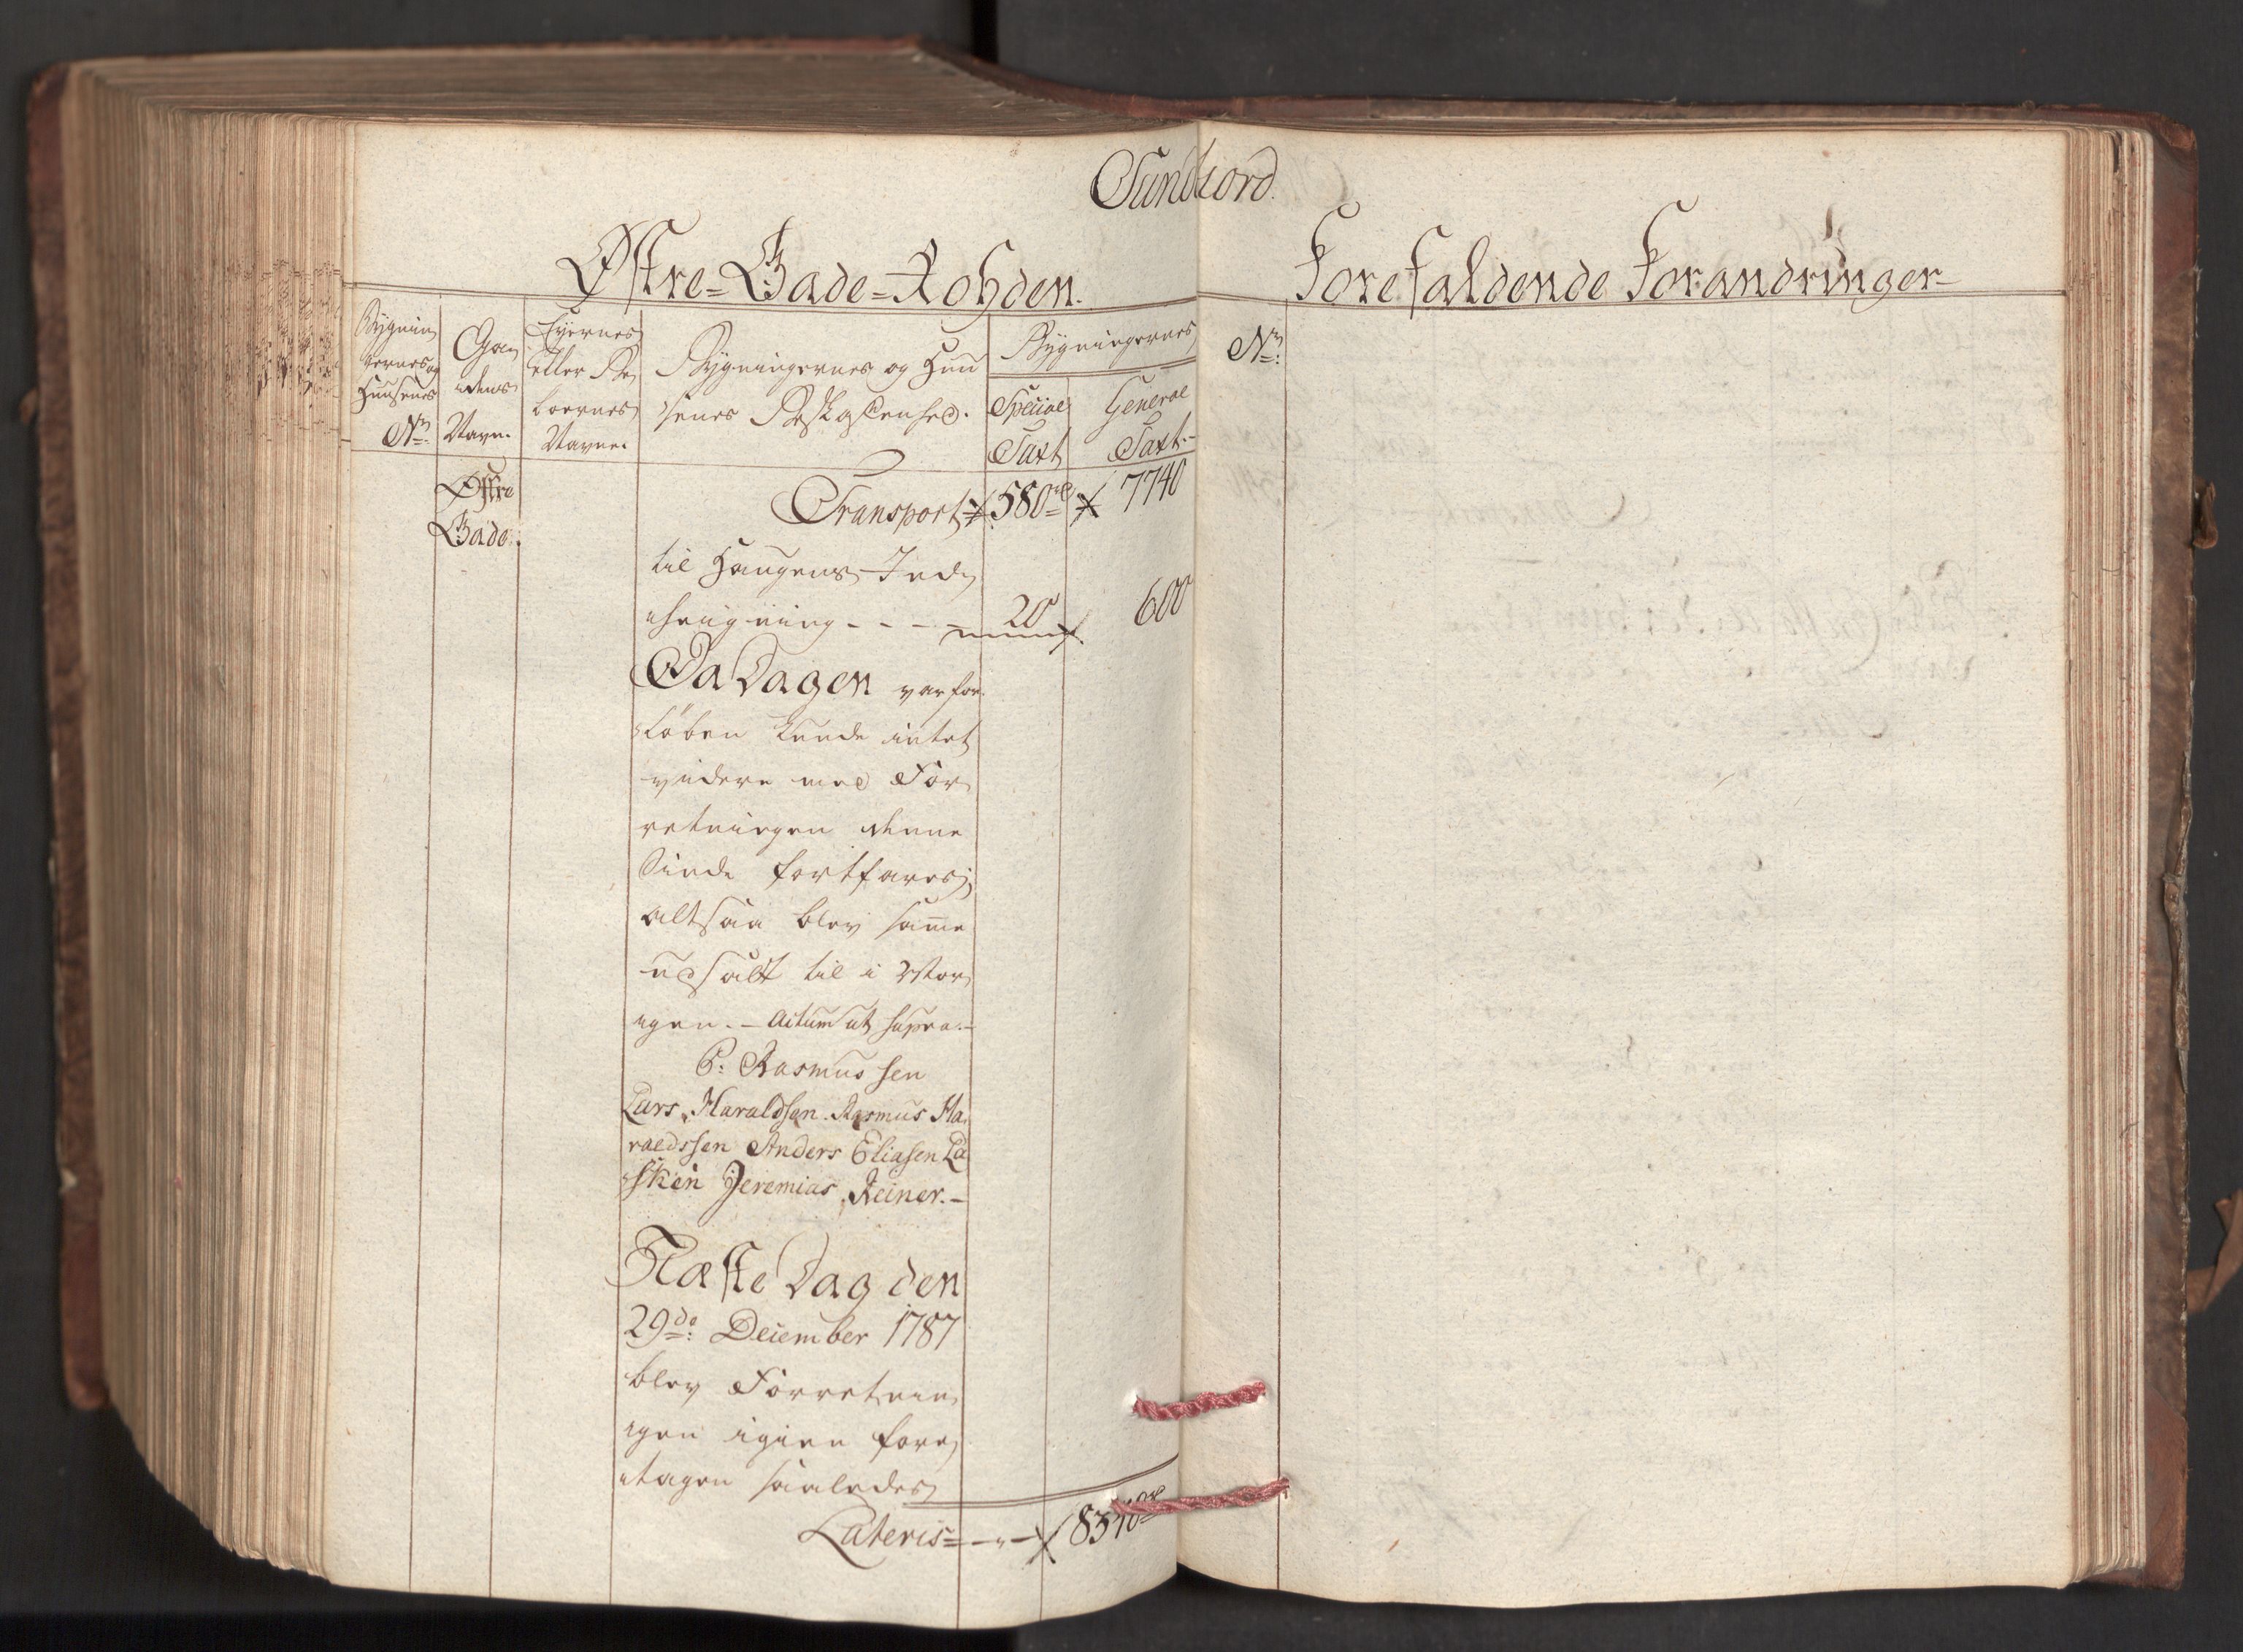 Sundhord.
Østre-Gade-Rohden.
Forefaldende Forandringer
Bygnin
gernes og
Huusenes
No.
Ga
dens
Navn.
Eyernes
eller Be
boernes
Navne.
Bygningernes og Huu
senes Beskaffenhed.
Bygningernes
Special
Taxt
General
Taxt.
No:
Østre
Gade.
Transport 580 rd 7740
til Haugens Ind
hægning - - - - 20 600
Da Dagen var for
løben kunde intet
videre med For
retningen denne
Sinde fortfares;
altsaa blev samme
udsatt til i Mor
gen. - Actum ut supra. -
P: Rasmussen
Lars Haraldsen. Rasmus Ha
raldssen Anders Eliasen La
sken Jeremias Reiner. -
Næste Dag den
29de: December 1787
blev Forretnin
gen igien fore
tagen saaledes
Lateris = - - - 8340 rd